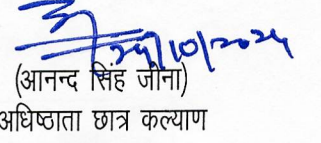 24/10/2024
(आनन्द सिंह जीना)
अधिष्ठाता छात्र कल्याण